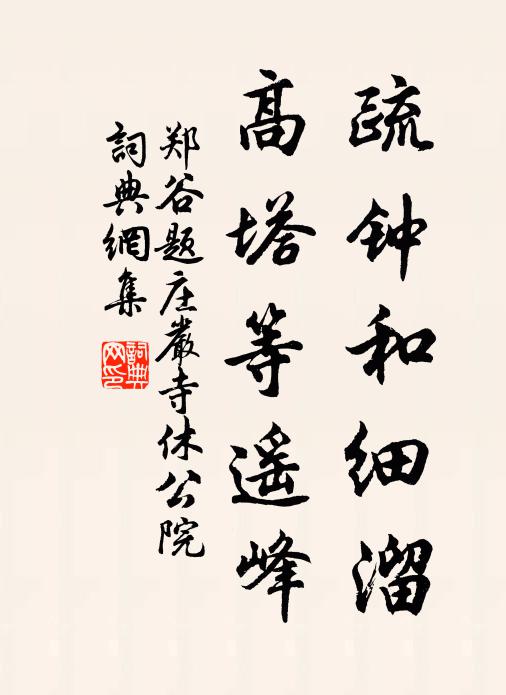 疏钟和细溜
高塔等遥峰
郑谷题庄严寺休公院
詞典網集
詞典
网印